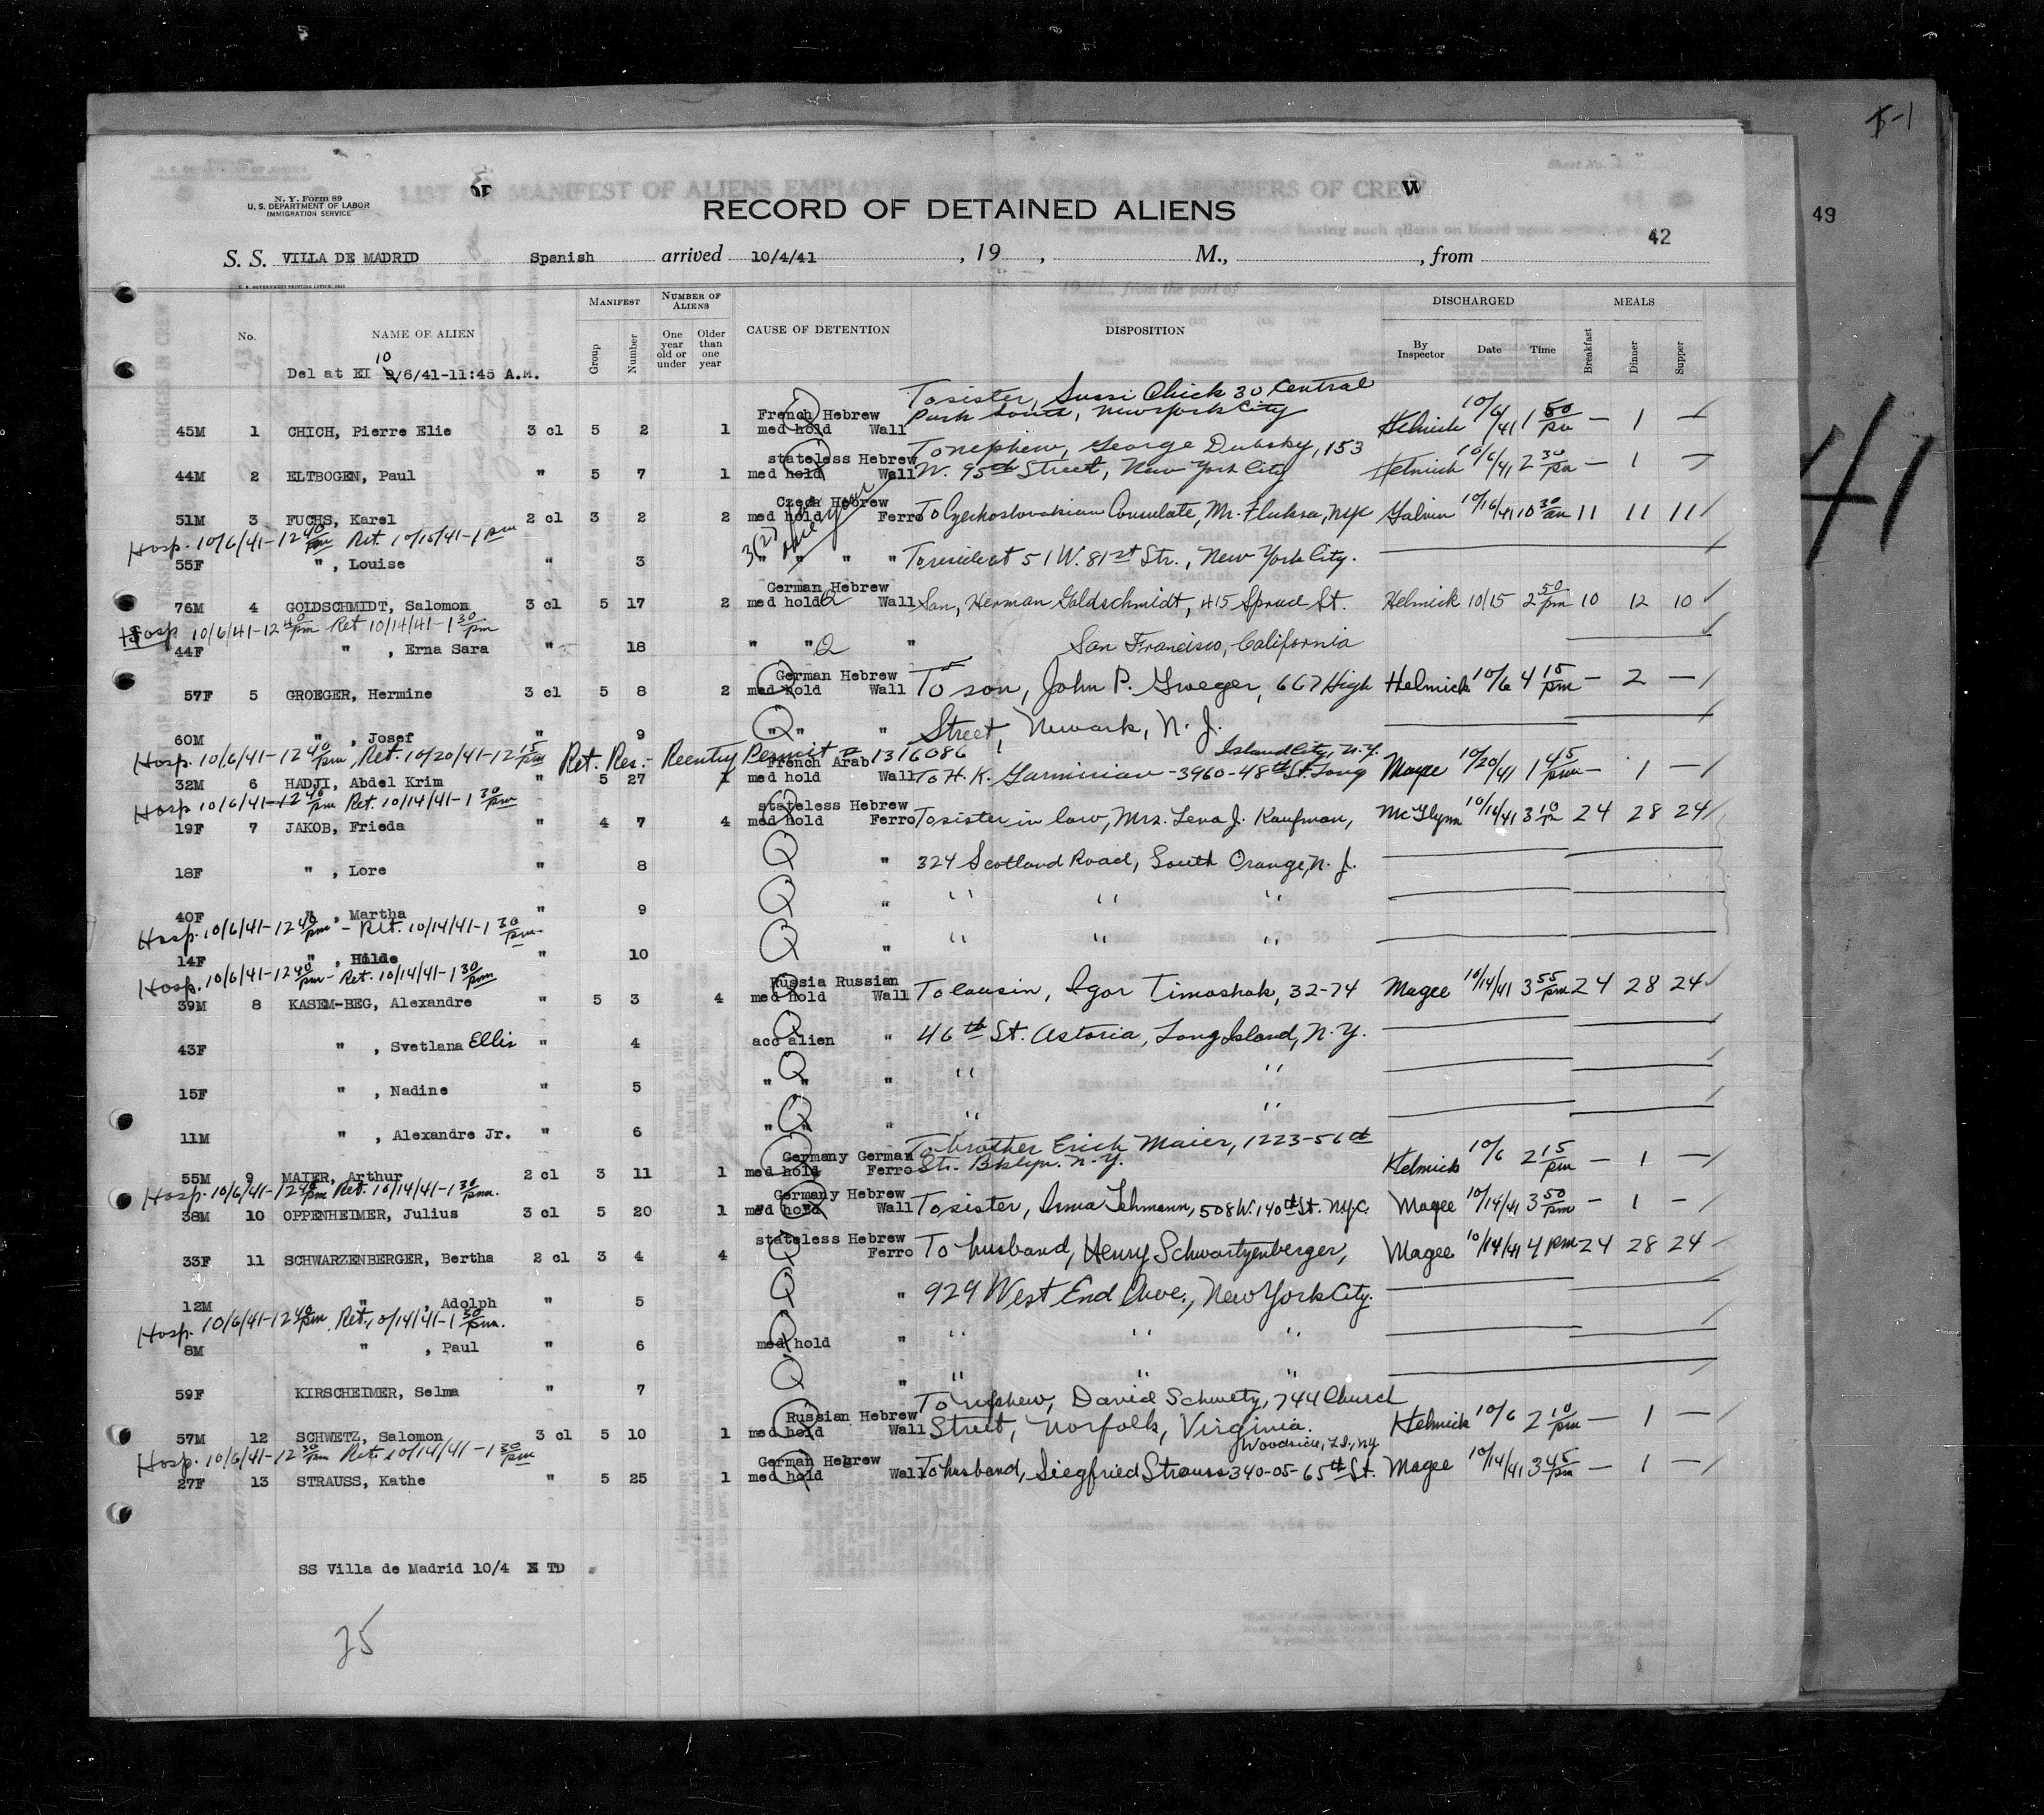 F-1
49
42
N. Y. Form 89
U. S. DEPARTMENT OF LABOR
IMMIGRATION SERVICE
OF
W
RECORD OF DETAINED ALIENS
S. S. VILLA DE MADRID Spanish arrived 10/4/41 , 19 , M., , from
U. S. GOVERNMENT PRINTING OFFICE
No. NAME OF ALIEN MANIFEST Group Number NUMBER OF ALIENS One year old or under Older than one year CAUSE OF DETENTION DISPOSITION DISCHARGED By Inspector Date Time MEALS Breakfast Dinner Supper
10
Del at EI 9/6/41-11:45 A.M.
To sister, Sussi Chick 30 Central
French Hebrew Park South, New York City
45M 1 CHICH, Pierre Elie 3 cl 5 2 1 med hold Wall Helmick 10/6/41 1 50/pm — 1 —
stateless Hebrew To nephew, George Dubsky, 153
44M 2 ELTBOGEN, Paul " 5 7 1 med hold Wall W. 95th Street, New York City Helmick 10/6/41 2 30/pm — 1 —
Czech Hebrew
51M 3 FUCHS, Karel 2 cl 3 2 2 med hold Ferro To Czechoslovakian Consulate, Mr. Fluksa, NYC Galvin 10/16/41 10 30/am 11 11 11
Hosp. 10/6/41-12 40/pm Ret. 10/15/41-1 pm
55F " , Louise " 3 " " " " To reside at 51 W. 81st Str., New York City.
German Hebrew
76M 4 GOLDSCHMIDT, Salomon 3 cl 5 17 2 med hold Wall Son, Herman Goldschmidt, 415 Spruce St. Helmick 10/15 2 50/pm 10 12 10
Hosp 10/6/41-12 40/pm Ret 10/14/41-1 30/pm
44F " , Erna Sara " 18 " " " San Francisco, California
German Hebrew
57F 5 GROEGER, Hermine 3 cl 5 8 2 med hold Wall To son, John P. Groeger, 667 High Helmick 10/6 4 15/pm — 2 —
60M " , Josef " 9 " " " Street, Newark, N. J.
Hosp. 10/6/41-12 40/pm, Ret. 10/20/41-12 15/pm Ret. Res. - Reentry Permit # 1316086 Island City, N.Y.
French Arab
32M 6 HADJI, Abdel Krim " 5 27 1 med hold Wall To H. K. Garminian - 3960-48th St. Long Magee 10/20/41 1 45/pm — 1 —
Hosp 10/6/41-12 40/pm Ret. 10/14/41-1 30/pm
stateless Hebrew
19F 7 JAKOB, Frieda " 4 7 4 med hold Ferro To sister in law, Mrs. Lena J. Kaufman, McGlynn 10/14/41 3 10 24 28 24
18F " , Lore " 8 " 324 Scotland Road, South Orange, N. J.
40F " , Martha " 9 " " " "
Hosp. 10/6/41-12 40/pm - Ret. 10/14/41-1 30/pm.
14F " , Hilde " 10 " " " "
Hosp. 10/6/41-12 40/pm - Ret. 10/14/41-1 30/pm
Russia Russian
39M 8 KASEM-BEG, Alexandre " 5 3 4 med hold Wall To cousin, Igor Timoshak, 32-74 Magee 10/14/41 3 55/pm 24 28 24
43F " , Svetlana Ellis " 4 acc alien " 46th St. Astoria, Long Island, N.Y.
15F " , Nadine " 5 " " " " "
11M " , Alexandre Jr. " 6 " " " " "
Germany German To brother Erich Maier, 1223-56th
55M 9 MAIER, Arthur 2 cl 3 11 1 med hold Ferro Str. Bklyn. N.Y. Helmick 10/6 2 15/pm — 1 —
Hosp. 10/6/41-12 40/pm Ret. 10/14/41-1 30/pm.
Germany Hebrew
38M 10 OPPENHEIMER, Julius 3 cl 5 20 1 med hold Wall To sister, Irma Lehmann, 508 W. 140th St. N.Y.C. Magee 10/14/41 3 50/pm — 1 —
stateless Hebrew
33F 11 SCHWARZENBERGER, Bertha 2 cl 3 4 4 Ferro To husband, Henry Schwartzenberger, Magee 10/14/41 4 pm 24 28 24
12M " , Adolph " 5 " 929 West End Ave., New York City.
Hosp. 10/6/41-12 40/pm Ret. 10/14/41-1 30/pm.
8M " , Paul " 6 med hold " " " "
59F KIRSCHEIMER, Selma " 7 " " "
Russian Hebrew To nephew, David Schwetz, 744 Church
57M 12 SCHWETZ, Salomon 3 cl 5 10 1 med hold Wall Street, Norfolk, Virginia. Helmick 10/6 2 10/pm — 1 —
Hosp. 10/6/41-12 30/pm Ret. 10/14/41-1 30/pm Woodside, L.I., NY
German Hebrew
27F 13 STRAUSS, Kathe " 5 25 1 med hold Wall To husband, Siegfried Strauss 340-05-65th St. Magee 10/14/41 3 45/pm — 1 —
SS Villa de Madrid 10/4 X TD
25
41